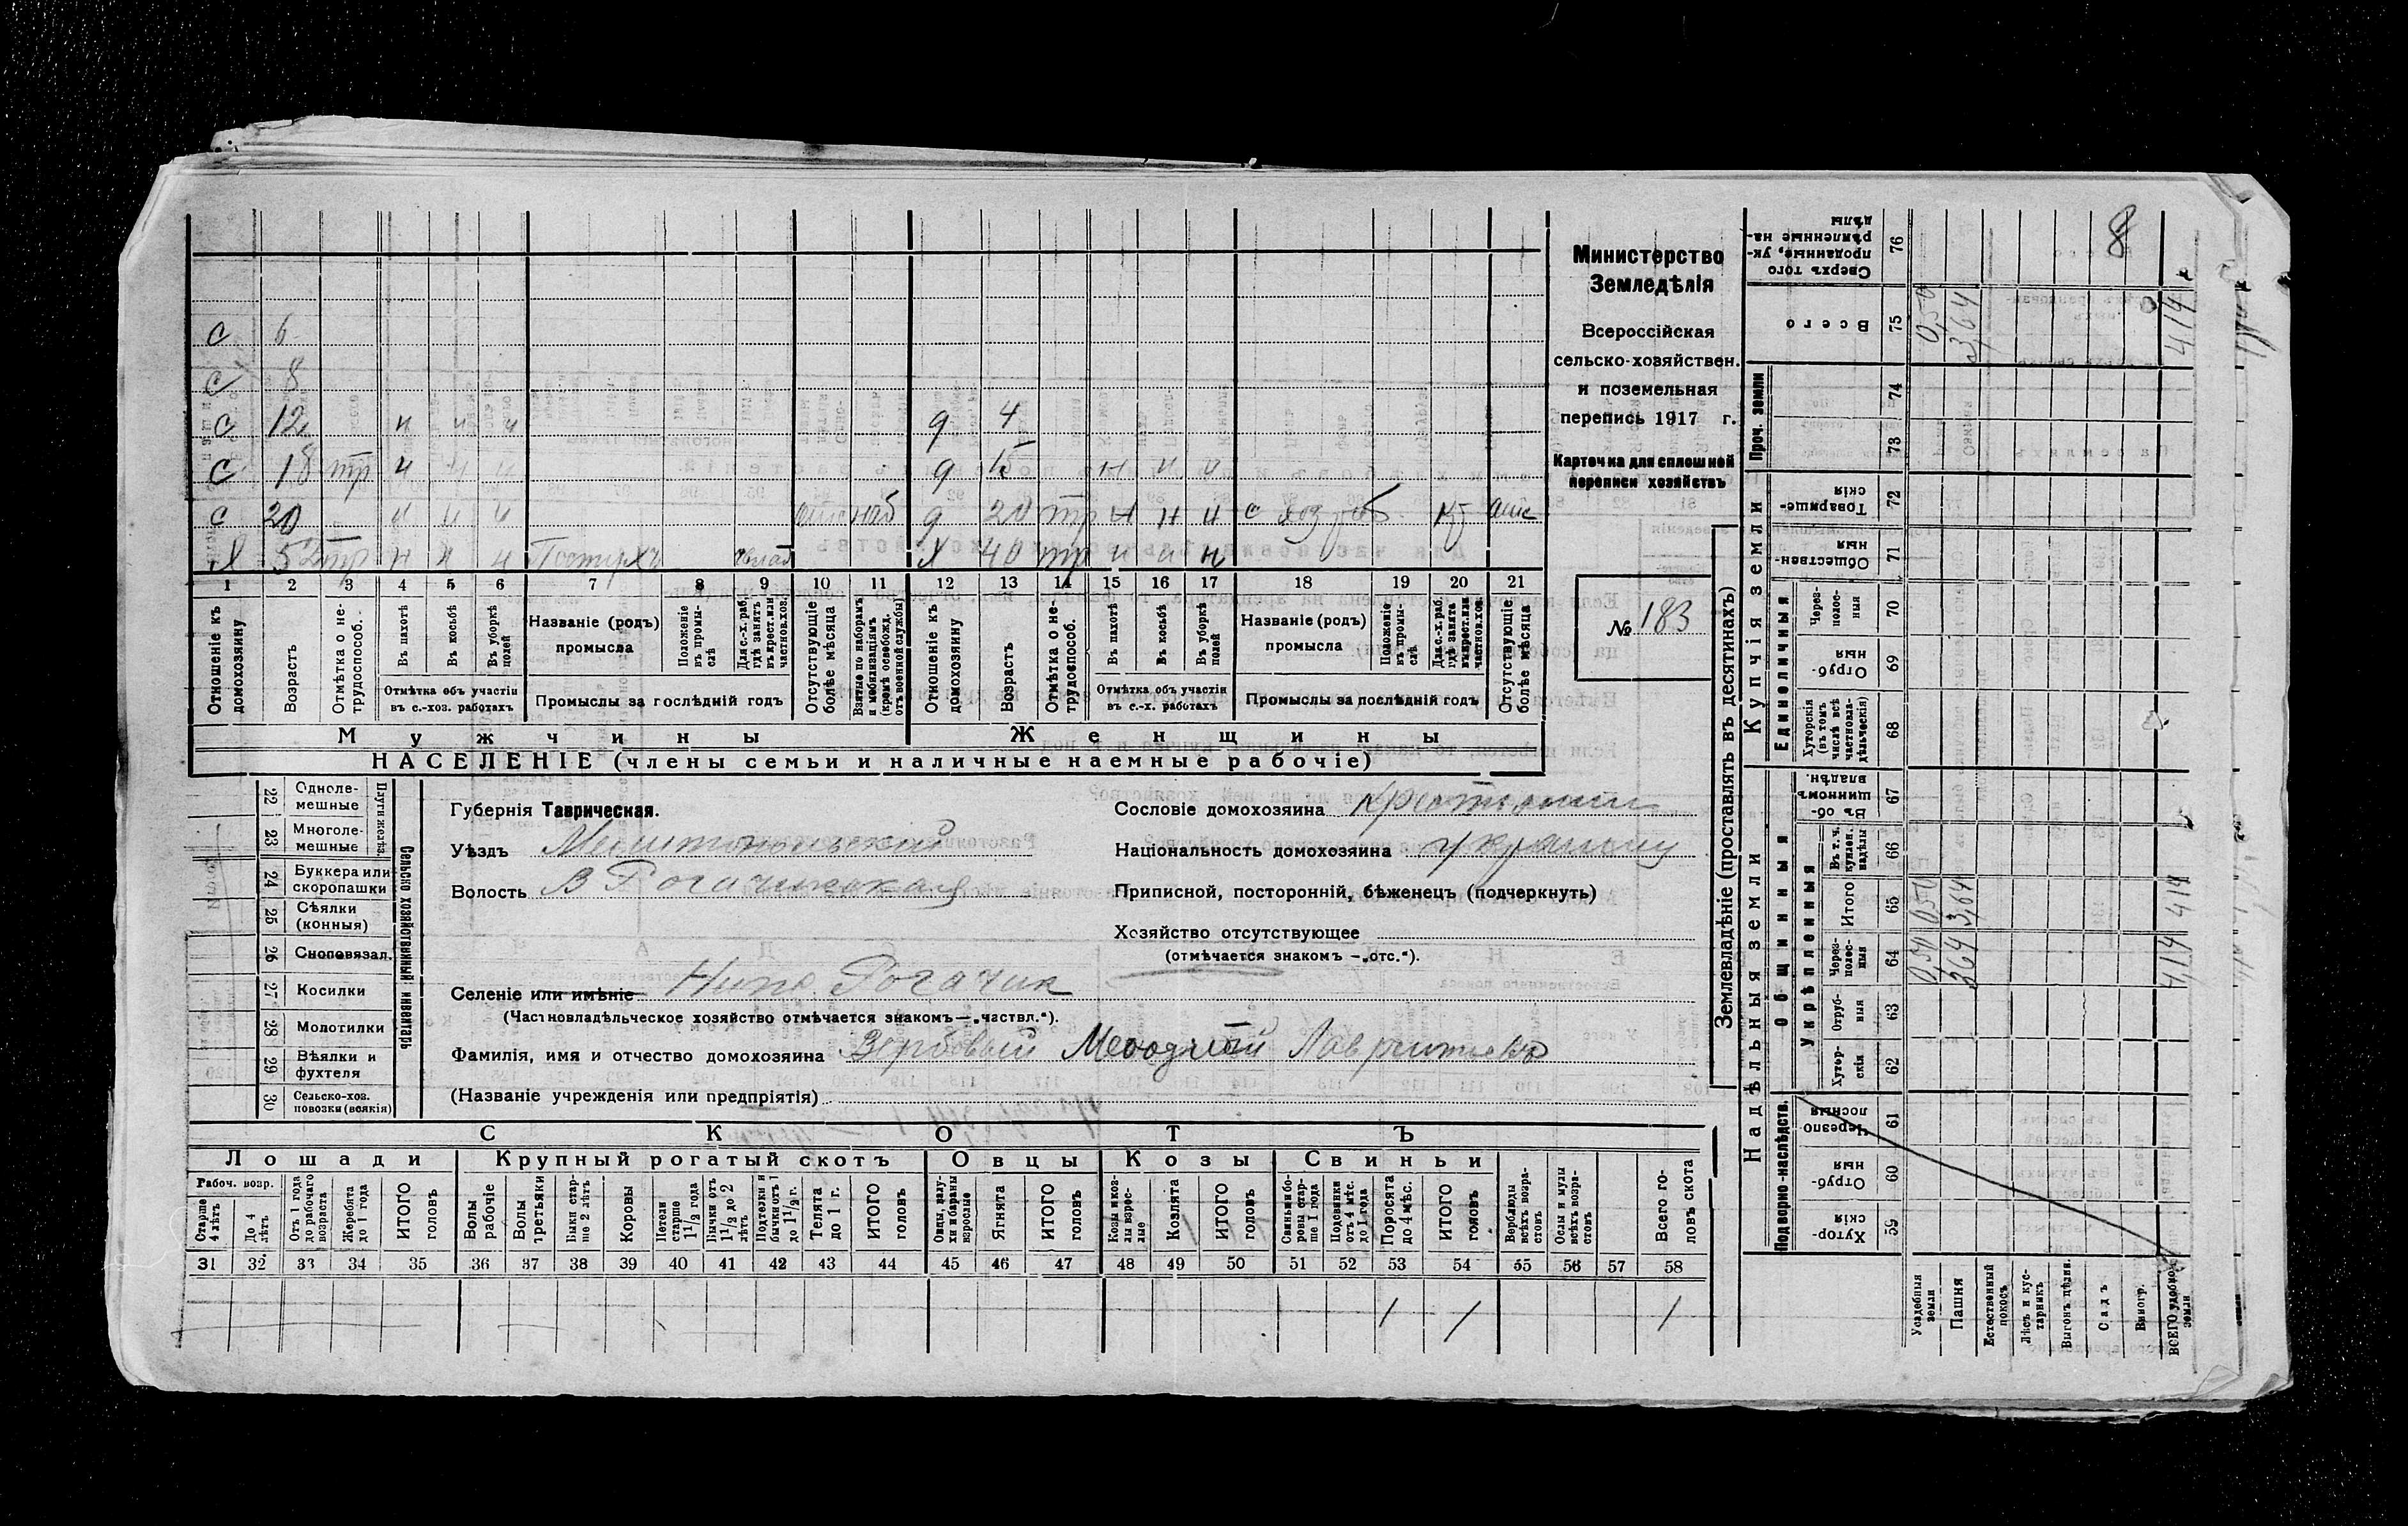 8
Министерство
Земледѣлія
Всероссійская
сельско-хозяйствен.
и поземельная
перепись 1917 г.
Карточка для сплошной
переписи хозяйствъ
№ 183
с 6
с 8
с 12 н н н д 4
с 18 тр н н н д 15 н н н
с 20 н н н наб д 20 тр н н н
Я 52 тр н н н Я 40 тр н н н
1 2 3 4 5 6 7 8 9 10 11 12 13 14 15 16 17 18 19 20 21
Отношеніе къ домохозяину
Возрастъ
Отмѣтка о не-трудоспособ.
Въ пахотѣ
Въ косьбѣ
Въ уборкѣ полей
Отмѣтка объ участіи въ с.-хоз. работахъ
Названіе (родъ) промысла
Положеніе въ промы-слѣ
Для с.-х. раб. гдѣ занятъ въ крест. или частнов. хоз.
Промыслы за послѣдній годъ
Отсутствующіе болѣе мѣсяца
Взятые по наборамъ и мобилизаціямъ (кромѣ освобожд. отъ военной службы)
Отношеніе къ домохозяину
Возрастъ
Отмѣтка о не-трудоспособ.
Въ пахотѣ
Въ косьбѣ
Въ уборкѣ полей
Отмѣтка объ участіи въ с.-х. работахъ
Названіе (родъ) промысла
Положеніе въ промы-слѣ
Для с.-х. раб. гдѣ занята въ крест. или частнов. хоз.
Промыслы за послѣдній годъ
Отсутствующіе болѣе мѣсяца
Мужчины
Женщины
НАСЕЛЕНІЕ (члены семьи и наличные наемные рабочіе)
22 Одноле-мешные
23 Многоле-мешные
Плуги желѣз.
24 Буккера или скоропашки
25 Сѣялки (конныя)
26 Сноповязал.
27 Косилки
28 Молотилки
29 Вѣялки и фухтеля
30 Сельско-хоз. повозки (всякія)
Сельско хозяйственный инвентарь
Губернія Таврическая.
Уѣздъ Мелитопольский
Волость В Рогачикская
Сословіе домохозяина
Національность домохозяина
Приписной, посторонній, бѣженецъ (подчеркнуть)
Хозяйство отсутствующее
(отмѣчается знакомъ —„отс.“).
Селеніе или имѣніе Нижн. Рогачик
(Частновладѣльческое хозяйство отмѣчается знакомъ—„частвл.“).
Фамилія, имя и отчество домохозяина Вербовый Мефодий
(Названіе учрежденія или предпріятія)
СКОТЪ
Лошади
Крупный рогатый скотъ
Овцы
Козы
Свиньи
Рабоч. возр.
Старше 4 лѣтъ
До 4 лѣтъ
Отъ 1 года до рабочаго возраста
Жеребята до 1 года
ИТОГО головъ
Волы рабочіе
Волы третьяки
Быки стар-ше 2 лѣтъ
Коровы
Нетели старше 1½ года
Бычки отъ 1½ до 2 лѣтъ
Подтелки и бычки отъ 1 до 1½ г.
Телята до 1 г.
ИТОГО головъ
Овцы, валу-хи и бараны взрослые
Ягнята
ИТОГО головъ
Козы и коз-лы взрос-лые
Козлята
ИТОГО головъ
Свиньи и бо-ровы стар-ше 1 года
Подсвинки отъ 4 мѣс. до 1 года
Поросята до 4 мѣс.
ИТОГО головъ
Верблюды всѣхъ возра-стовъ
Ослы и мулы всѣхъ возра-стовъ
Всего го-ловъ скота
31 32 33 34 35 36 37 38 39 40 41 42 43 44 45 46 47 48 49 50 51 52 53 54 55 56 57 58
1 1 1
Землевладѣніе (проставлять въ десятинахъ)
Надѣльныя земли
Купчія земли
Подворно-наслѣдств.
Общинныя
Укрѣпленныя
Единоличныя
Проч. земли
Хутор-скія 59
Отруб-ныя 60
Черезпо лосныя 61
Хутор-скія 62
Отруб-ныя 63
Через-полос-ныя 64
Итого 65
Въ т. ч. куплен. надѣлы 66
Въ об-щинномъ владѣн. 67
Хуторскія (въ томъ числѣ всѣ частновла-дѣльческія) 68
Отруб-ныя 69
Через-полос-ныя 70
Обществен-ныя 71
Товарище-скія 72
73
74
Всего 75
Сверхъ того проданные, ук-рѣпленные на-дѣлы 76
Усадебныя земли
Пашня
Естественный покосъ
Лѣсъ и кус-тарникъ
Выгонъ цѣлин.
Садъ
Виногр.
ВСЕГО удобной земли
0,50 3,64 4,14
0,50 3,64 4,14
0,50 3,64 4,14